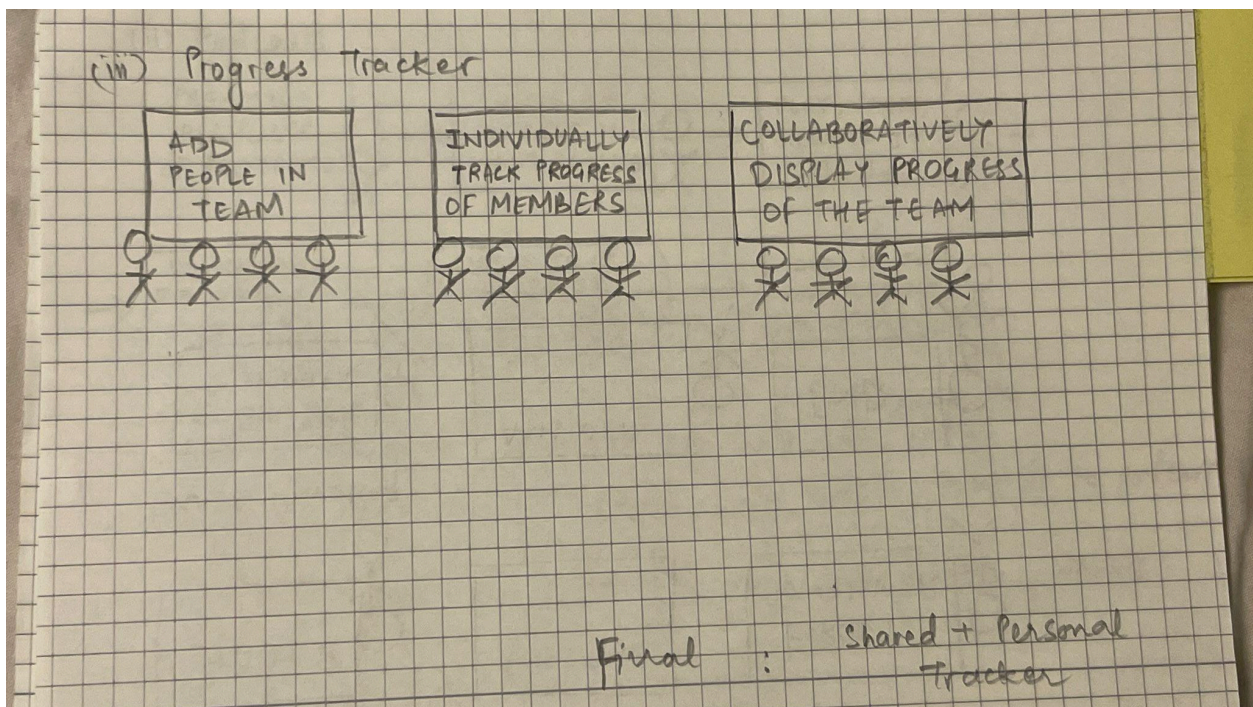 (iii) Progress Tracker
ADD
PEOPLE IN
TEAM
INDIVIDUALLY
TRACK PROGRESS
OF MEMBERS
COLLABORATIVELY
DISPLAY PROGRESS
OF THE TEAM
Final : Shared + Personal
Tracker